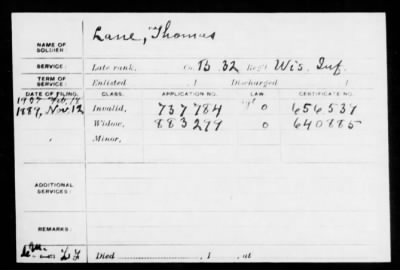 NAME OF SOLDIER: Lane, Thomas
SERVICE: Late rank, Co. B 32 Reg't Wis. Inf.
TERM OF SERVICE: Enlisted , 1 Discharged , 1
DATE OF FILING. CLASS. APPLICATION NO. LAW. CERTIFICATE NO.
1889, Nov. 12 Invalid, 737784 656537
1907 Feb.
Widow, 883279 0 640885
Minor,
ADDITIONAL SERVICES:
REMARKS:
Died , 1 , at